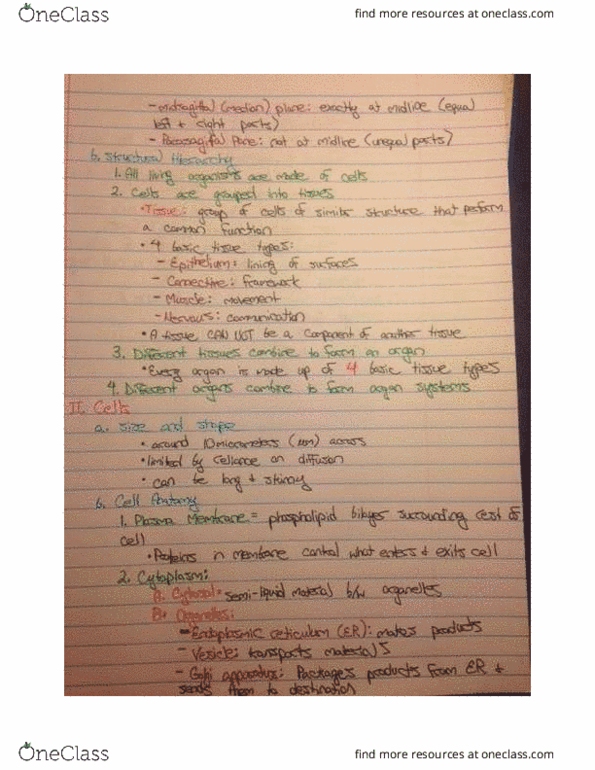 OneClass
find more resources at oneclass.com
- midsagittal (median) plane: exactly at midline (equal
left + right parts)
- Parasagittal Plane: not at midline (unequal parts)
b. Structural Hierarchy
1. All living organisms are made of cells
2. Cells are grouped into tissues
• Tissue: group of cells of similar structure that perform
a common function
• 4 basic tissue types:
- Epithelium: lining of surfaces
- Connective: framework
- Muscle: movement
- Nervous: communication
• A tissue CAN NOT be a component of another tissue
3. Different tissues combine to form an organ
• Every organ is made up of 4 basic tissue types
4. Different organs combine to form organ systems
II. Cells
a. size and shape
• around 10 micrometers (um) across
• limited by reliance on diffusion
• can be long + skinny
b. Cell Anatomy
1. Plasma Membrane = phospholipid bilayer surrounding rest of
cell
• Proteins in membrane control what enters + exits cell
2. Cytoplasm:
A. Cytosol = semi-liquid material b/w organelles
B. Organelles:
- Endoplasmic reticulum (ER): makes products
- Vesicle: transports materials
- Golgi apparatus: Packages products from ER +
sends them to destination
OneClass
find more resources at oneclass.com